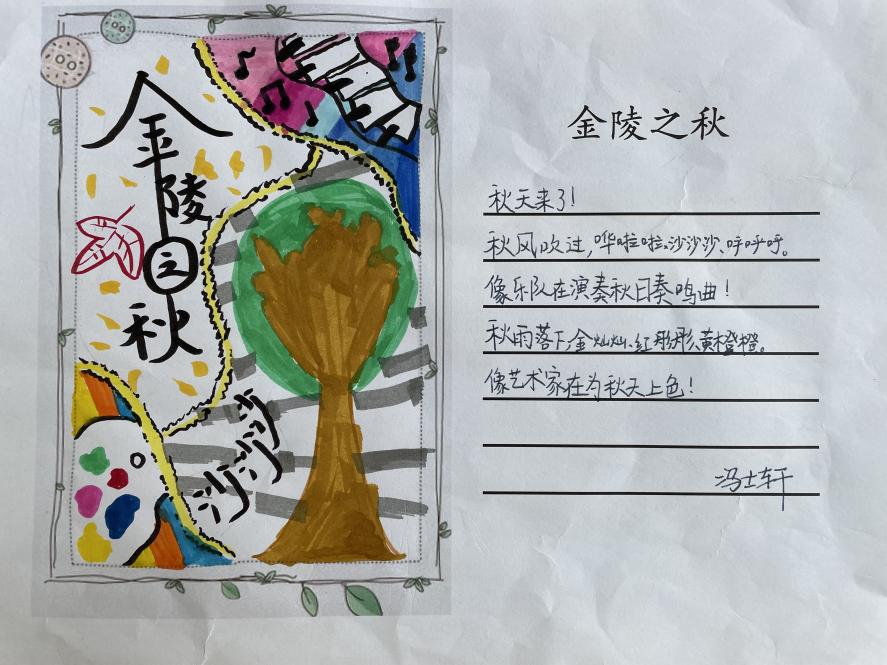 金陵之秋
沙沙沙
金陵之秋
秋天来了!
秋风吹过,哗啦啦、沙沙沙、呼呼呼。
像乐队在演奏秋日奏鸣曲!
秋雨落下,金灿灿、红彤彤、黄橙橙。
像艺术家在为秋天上色!
冯士轩